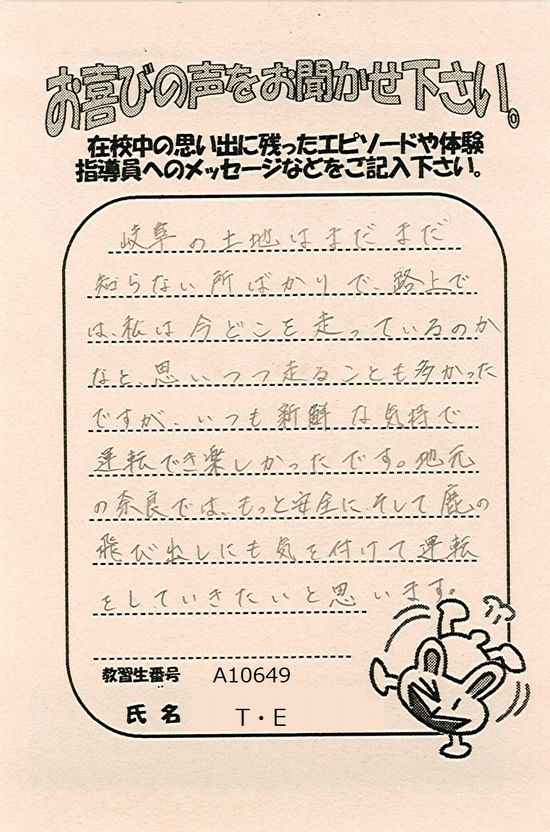 お喜びの声をお聞かせ下さい。
在校中の思い出に残ったエピソードや体験
指導員へのメッセージなどをご記入下さい。
岐阜の土地はまだまだ
知らない所ばかりで、路上で
は、私は今どこを走っているのか
なと、思いつつ走ることも多かった
ですが、いつも新鮮な気持で
運転でき楽しかったです。地元
の奈良では、もっと安全に、そして鹿の
飛び出しにも気を付けて運転
をしていきたいと思います。
教習生番号 A10649
氏名 T・E